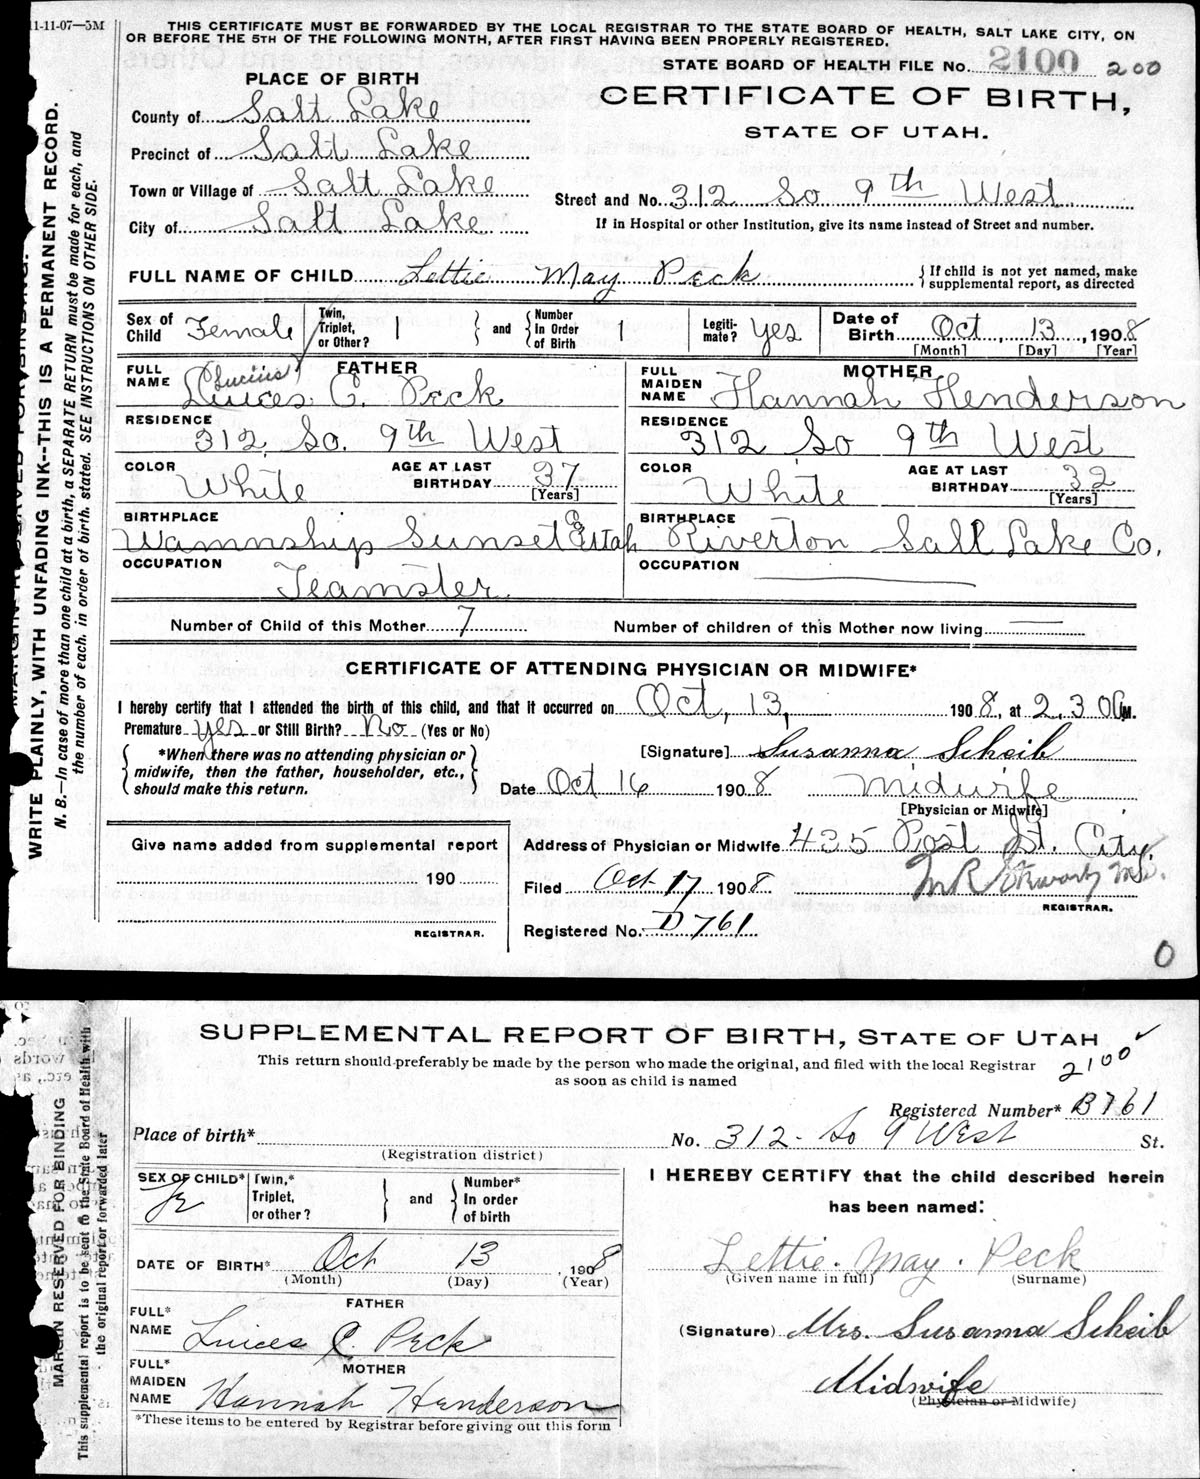 11-11-07—5M
THIS CERTIFICATE MUST BE FORWARDED BY THE LOCAL REGISTRAR TO THE STATE BOARD OF HEALTH, SALT LAKE CITY, ON
OR BEFORE THE 5TH OF THE FOLLOWING MONTH, AFTER FIRST HAVING BEEN PROPERLY REGISTERED.
STATE BOARD OF HEALTH FILE No. 2100 200
PLACE OF BIRTH
CERTIFICATE OF BIRTH,
STATE OF UTAH.
County of Salt Lake
Precinct of Salt Lake
Town or Village of Salt Lake
Street and No. 312 So 9th West
City of Salt Lake
If in Hospital or other Institution, give its name instead of Street and number.
FULL NAME OF CHILD Lettie May Peck
If child is not yet named, make
supplemental report, as directed
Sex of Child Female
Twin, Triplet, or Other? 1 and Number In Order of Birth 1
Legiti-mate? Yes
Date of Birth Oct, 13, 1908
[Month] [Day] [Year]
FATHER
FULL NAME Luices (Lucius) C. Peck
RESIDENCE 312 So. 9th West
COLOR White
AGE AT LAST BIRTHDAY 37
[Years]
BIRTHPLACE Wamnship Sunset Co Utah
OCCUPATION Teamster
MOTHER
FULL MAIDEN NAME Hannah Henderson
RESIDENCE 312 So 9th West
COLOR White
AGE AT LAST BIRTHDAY 32
[Years]
BIRTHPLACE Riverton Salt Lake Co.
OCCUPATION
Number of Child of this Mother 7
Number of children of this Mother now living
CERTIFICATE OF ATTENDING PHYSICIAN OR MIDWIFE*
I hereby certify that I attended the birth of this child, and that it occurred on Oct, 13, 1908, at 2.30 M.
Premature Yes or Still Birth? No (Yes or No)
*When there was no attending physician or
midwife, then the father, householder, etc.,
should make this return.
[Signature] Susanna Scheib
Date Oct 16 1908 Midwife
[Physician or Midwife]
Give name added from supplemental report
190
REGISTRAR.
Address of Physician or Midwife 435 Post St. City.
Filed Oct 17 1908 M R Stewart M.D.
REGISTRAR.
Registered No. D761
0
MARGIN RESERVED FOR BINDING.
WRITE PLAINLY, WITH UNFADING INK--THIS IS A PERMANENT RECORD.
N. B.—In case of more than one child at a birth, a SEPARATE RETURN must be made for each, and
the number of each, in order of birth, stated. SEE INSTRUCTIONS ON OTHER SIDE.
SUPPLEMENTAL REPORT OF BIRTH, STATE OF UTAH
This return should preferably be made by the person who made the original, and filed with the local Registrar
as soon as child is named
2100
Registered Number* B761
Place of birth* No. 312- So 9 West St.
(Registration district)
SEX OF CHILD* Fe
Twin,* Triplet, or other? and Number* In order of birth
DATE OF BIRTH* Oct 13, 1908
(Month) (Day) (Year)
FATHER
FULL* NAME Luices C. Peck
MOTHER
FULL* MAIDEN NAME Hannah Henderson
*These items to be entered by Registrar before giving out this form
I HEREBY CERTIFY that the child described herein
has been named:
Lettie. May. Peck
(Given name in full) (Surname)
(Signature) Mrs. Susanna Scheib
Midwife
(Physician or Midwife)
MARGIN RESERVED FOR BINDING
This supplemental report is to be sent to the State Board of Health with
the original report or forwarded later